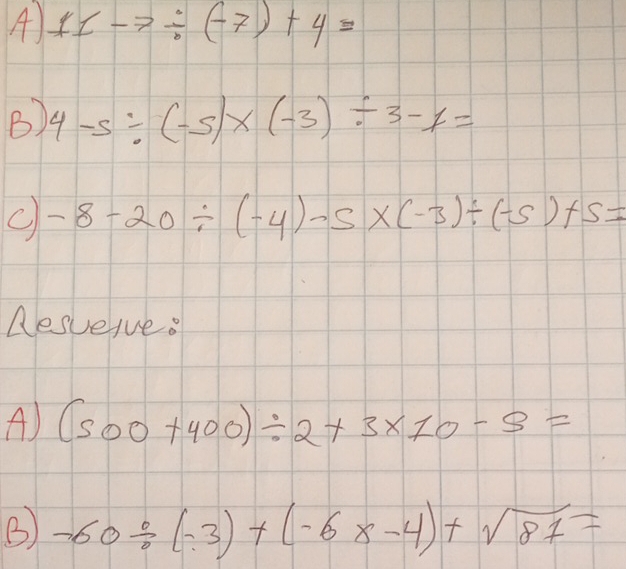 A) 11 - 7 ÷ (-7) + 4 =
B) 4 - 5 ÷ (-5) × (-3) ÷ 3 - 1 =
C) - 8 - 20 ÷ (-4) - 5 × (-3) ÷ (-5) + 5 =
Resuelve:
A) (500 + 400) ÷ 2 + 3 × 10 - 8 =
B) -60 ÷ (-3) + (-6 × -4) + √81 =